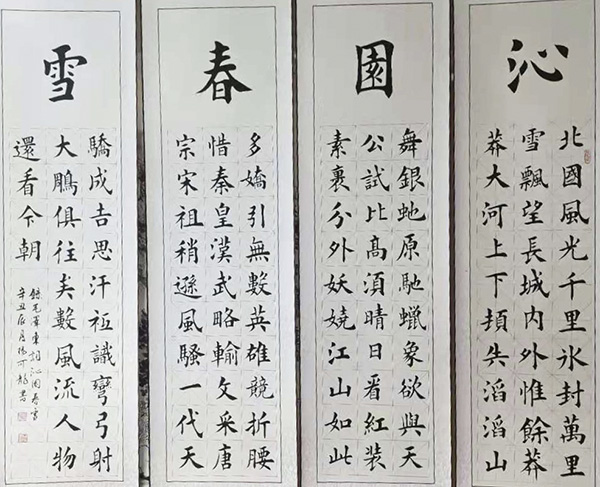 沁
北國風光千里氷封萬里
雪飄望長城内外惟餘莽
莽大河上下頓失滔滔山
園
舞銀虵原馳蠟象欲與天
公試比高湏晴日看紅裝
素裹分外妖嬈江山如此
春
多嬌引無數英雄競折腰
惜秦皇漢武略輸文采唐
宗宋祖稍遜風騷一代天
雪
驕成吉思汗祗識彎弓射
大鵰俱往矣數風流人物
還看今朝
錄毛澤東詞沁園春雪
辛丑辰月楊可龍書